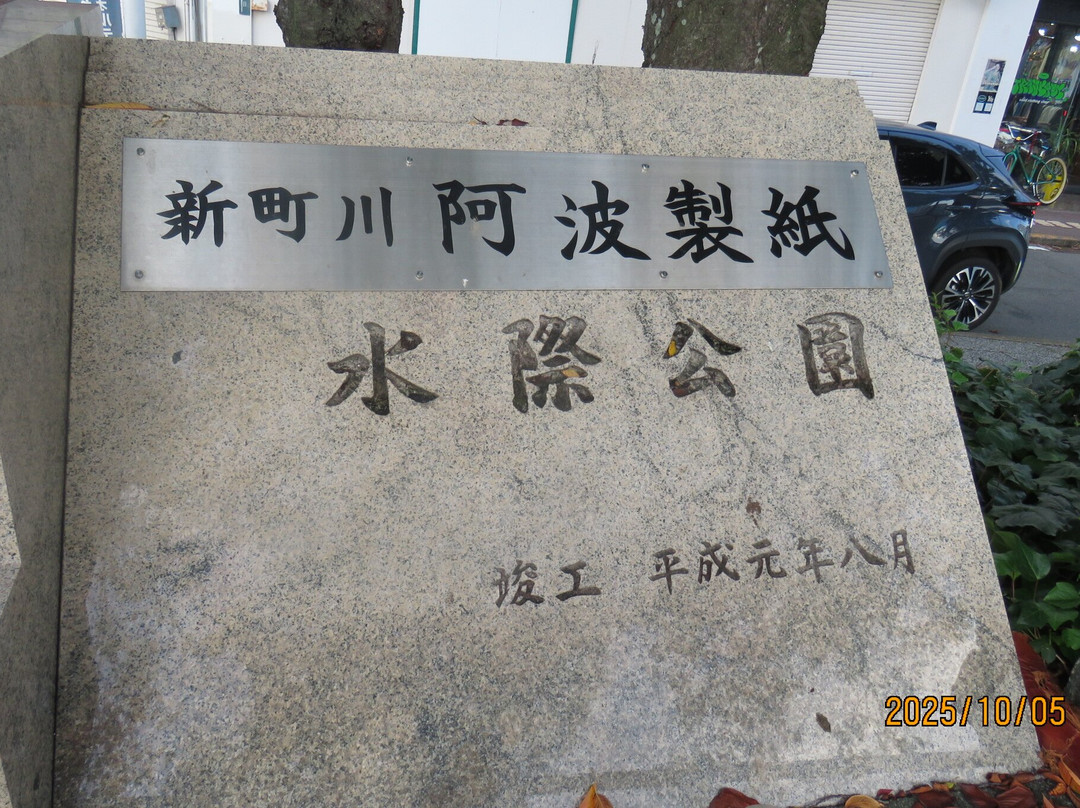 新町川 阿波製紙
水際公園
竣工 平成元年八月
2025/10/05